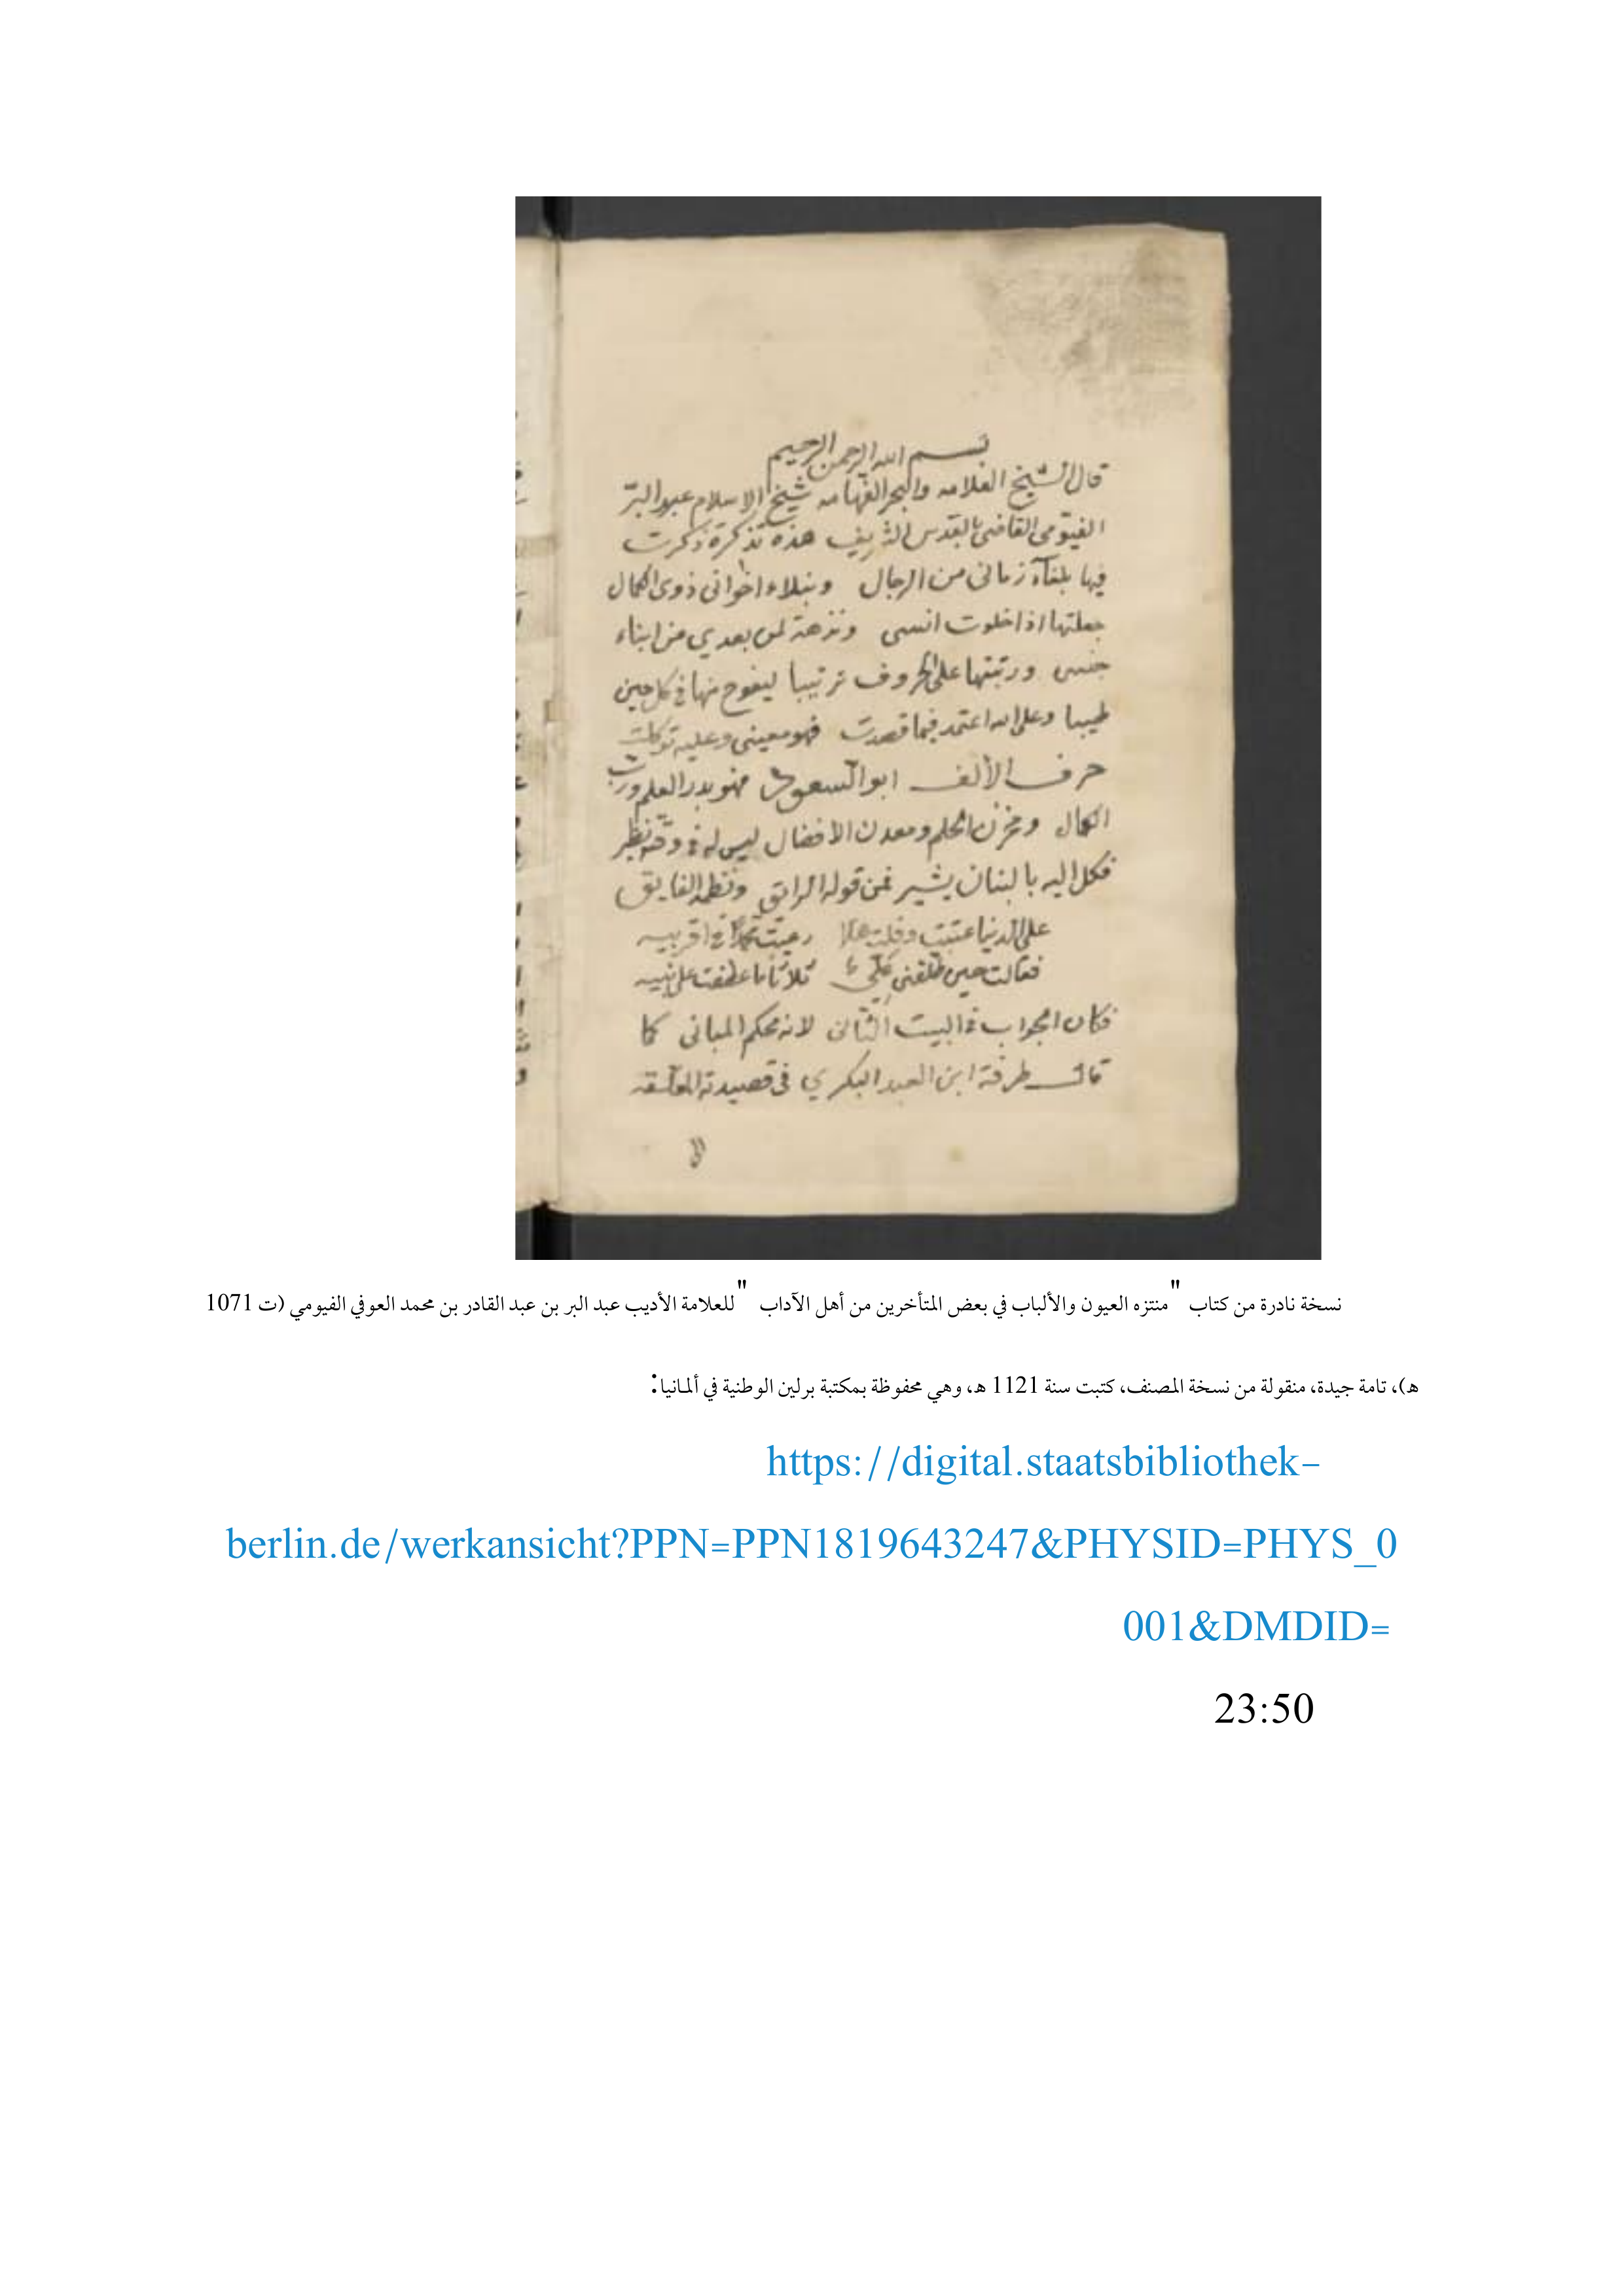 بسم الله الرحمن الرحيم
قال الشيخ العلامه والبحر الفهامه شيخ الاسلام عبد البرّ
الفيومى القاضى بالقدس الشريف هذه تذكرة ذكرت
فيها بلغآء زمانى من الرجال ونبلاء اخوانى ذوى الكمال
جعلتها اذا خلوت انسى ونزهة لمن بعدي من ابناء
جنسى ورتبتها على الحروف ترتيبا ليفوح منها فى كل حين
طيبا وعلى الله اعتمد فيما قصدت فهو معينى وعليه توكلت
حرف الألف ابو السعود فهو بدر العلم ورب
الكمال ومخزن الحلم ومعدن الافضال ليس له فى وقته نظير
فكل اليه بالبنان يشير فمن قوله الرائق ونظمه الفايق
على الدنيا عتبت وقلت هلا رعيت
فقالت حين طلقنى على ثلاثا ما عطفت على بنيه
فكان الجواب فى البيت الثانى لانه محكم المبانى كما
قال طرفة ابن العبد البكري فى قصيدته المعلقه
نسخة نادرة من كتاب "منتزه العيون والألباب في بعض المتأخرين من أهل الآداب "للعلامة الأديب عبد البر بن عبد القادر بن محمد العوفي الفيومي (ت 1071
هـ)، تامة جيدة، منقولة من نسخة المصنف، كتبت سنة 1121 هـ، وهي محفوظة بمكتبة برلين الوطنية في ألمانيا:
https://digital.staatsbibliothek-
berlin.de/werkansicht?PPN=PPN1819643247&PHYSID=PHYS_0
001&DMDID=
23:50